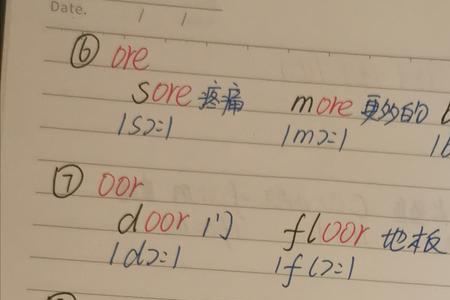 Date. / /
⑥ ore
sore 疼痛 more 更多的
/sɔː/ /mɔː/
⑦ oor
door 门 floor 地板
/dɔː/ /flɔː/